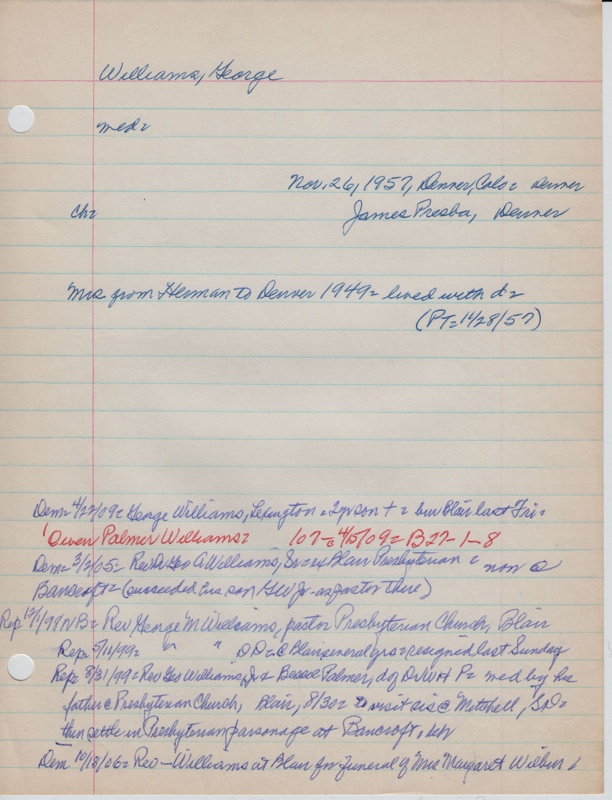 Williams, George
med=
Nov. 26, 1957, Denver, Colo= Denver
Ch=
James Presba, Denver
Mrs from Herman to Denver 1949= lived with d=
(PT= 11/28/57)
Dem= 4/22/09= George Williams, Lexington = 2yr son + = bur Blair last Fri=
Owen Palmer Williams= 107- 4/15/09= B27-1-8
Dem= 3/2/05= Rev Dr Geo A Williams, Sr= Blair Presbyterian = now @
Bancroft= (succeeded his son GW Jr. as pastor there)
Rep 12/1/98 NB= Rev George M Williams, pastor Presbyterian Church, Blair
Rep= 5/11/99= " " DD= @ Blair several yrs= resigned last Sunday
Rep= 8/31/99= Rev Geo Williams, Jr & Bessie Palmer, d of Dr WH P= med by his
father @ Presbyterian Church, Blair, 8/30= to visit sis @ Mitchell, SD=
then settle in Presbyterian parsonage at Bancroft, Neb
Dem 10/18/06= Rev — Williams at Blair for funeral of Mrs Margaret Wilbur